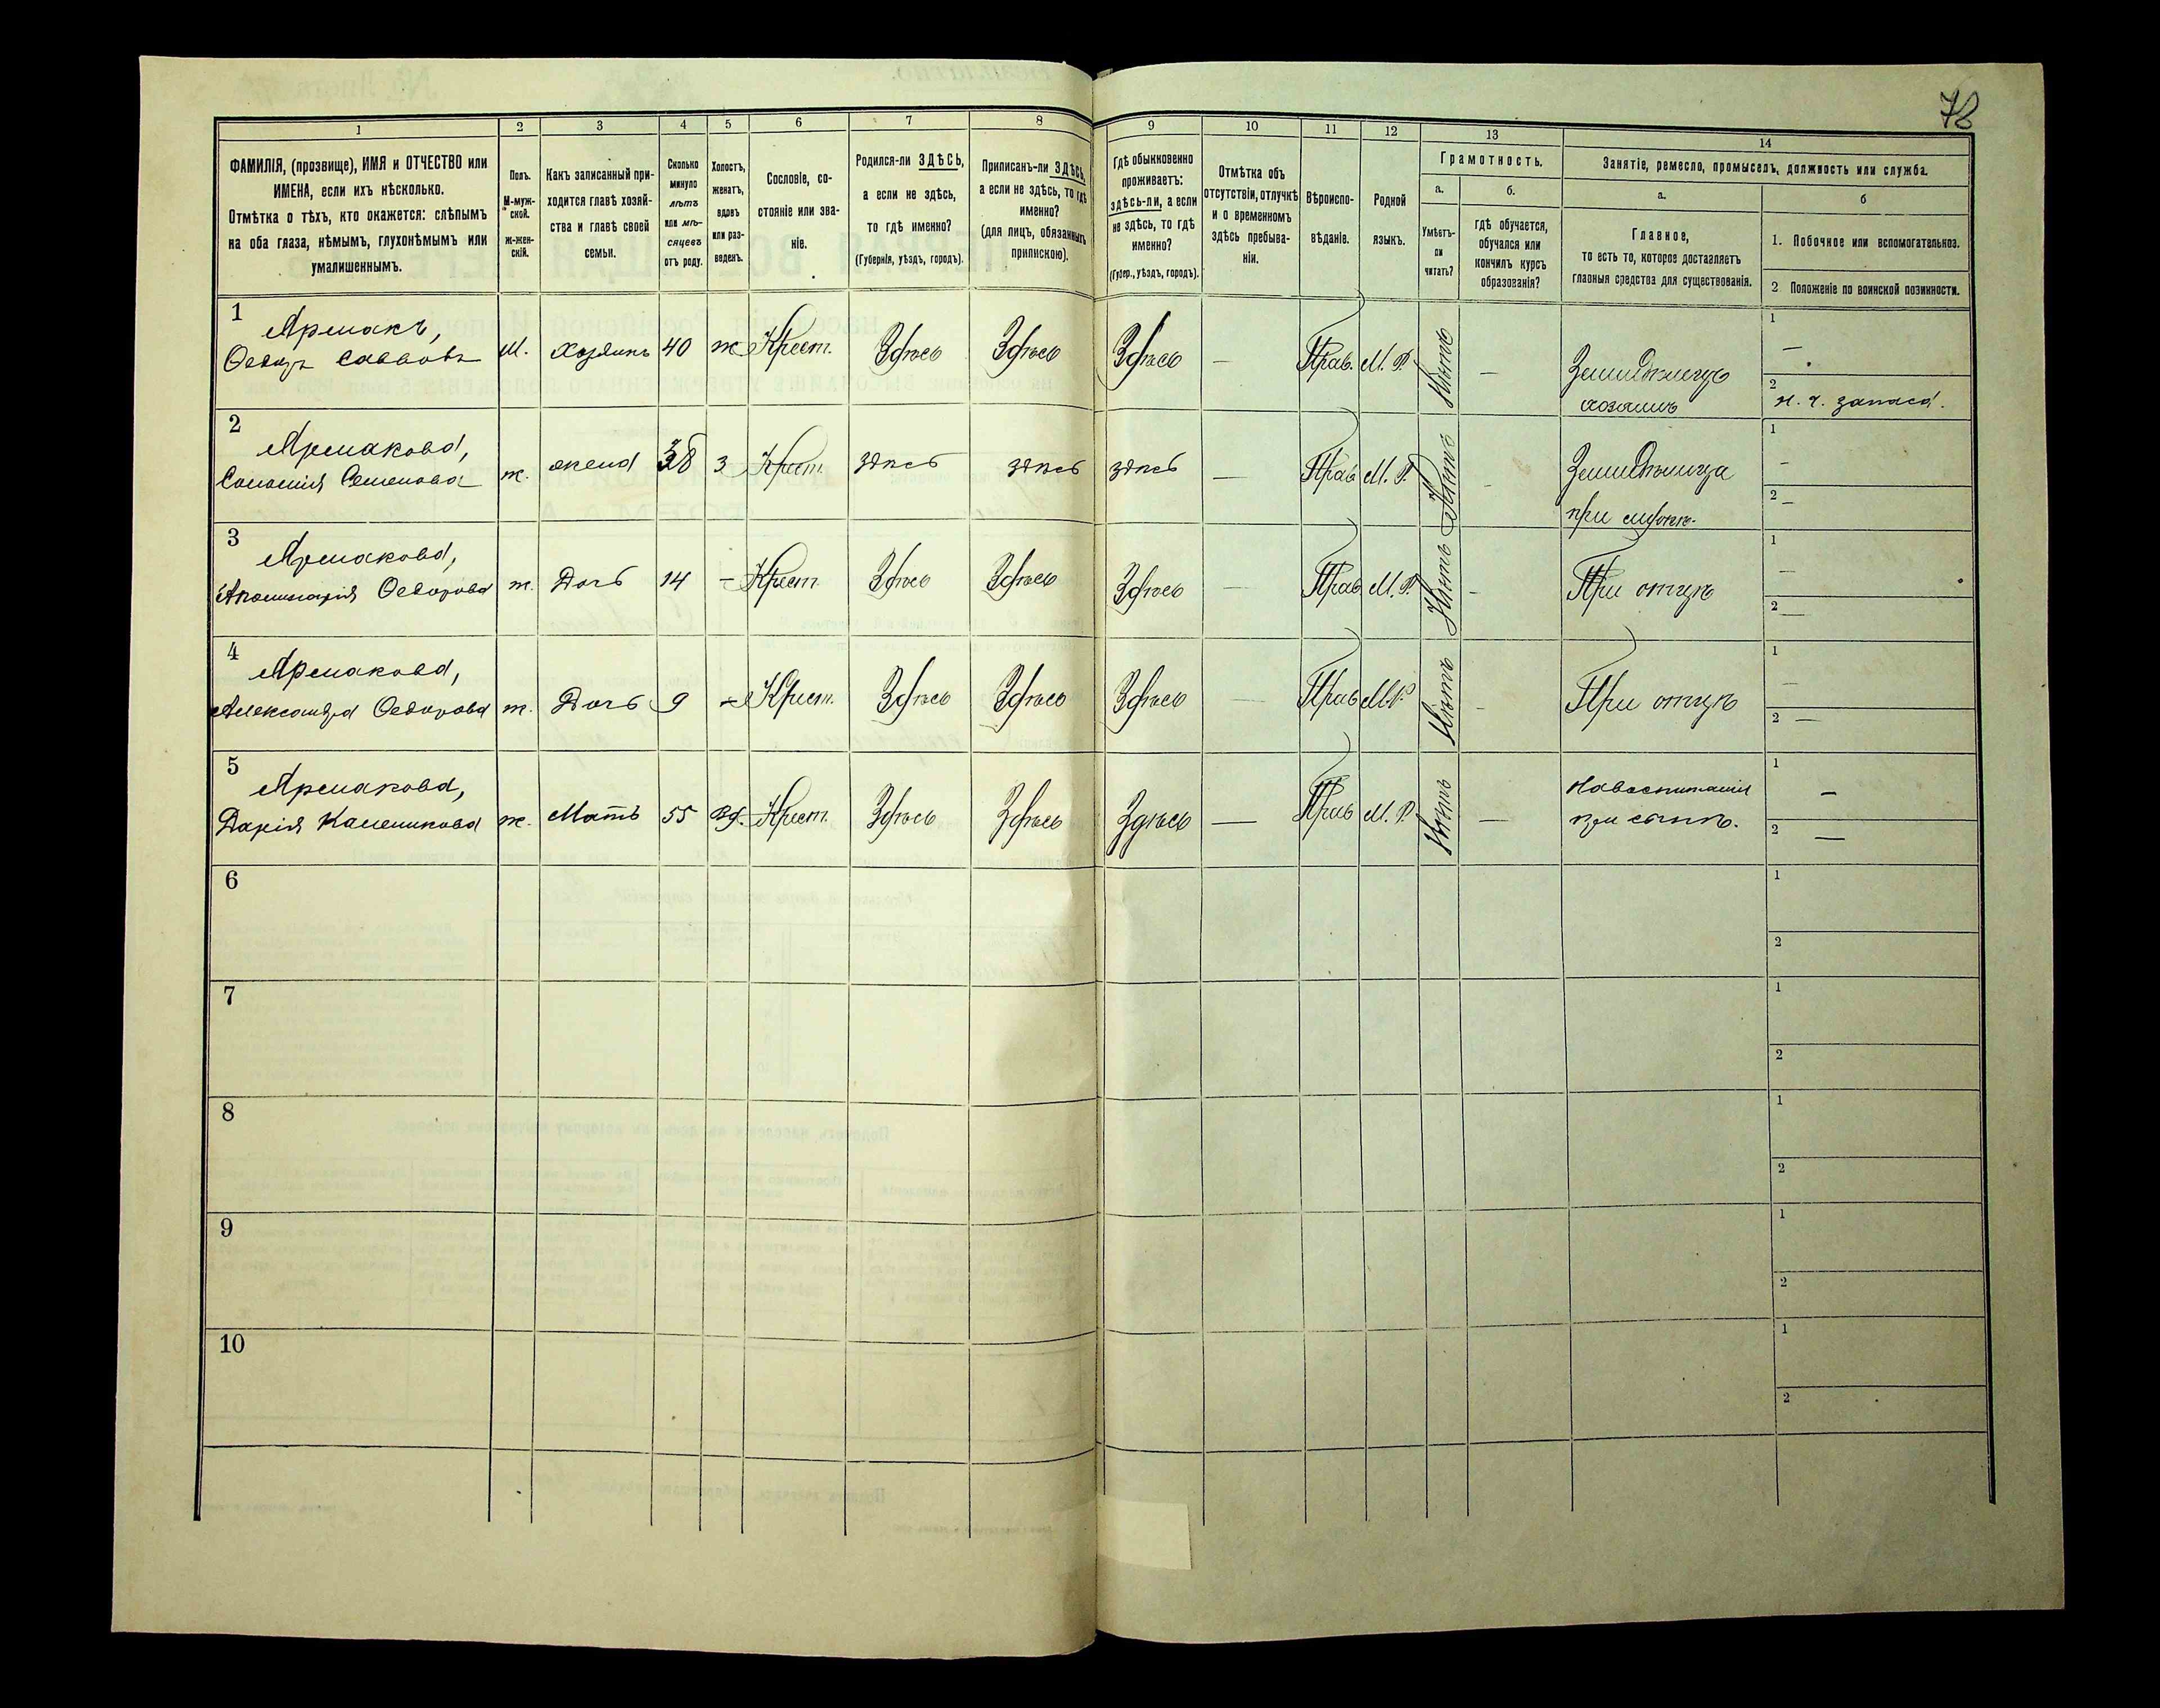 78
1 2 3 4 5 6 7 8 9 10 11 12 13 14
ФАМИЛІЯ, (прозвище), ИМЯ и ОТЧЕСТВО или
ИМЕНА, если ихъ нѣсколько.
Отмѣтка о тѣхъ, кто окажется: слѣпымъ
на оба глаза, нѣмымъ, глухонѣмымъ или
умалишеннымъ.
Полъ.
М-муж-
ской.
ж-жен-
скій.
Какъ записанный при-
ходится главѣ хозяй-
ства и главѣ своей
семьи.
Сколько
минуло
лѣтъ
или мѣ-
сяцевъ
отъ роду.
Холостъ,
женатъ,
вдовъ
или раз-
веденъ.
Сословіе, со-
стояніе или зва-
ніе.
Родился-ли ЗДѢСЬ,
а если не здѣсь,
то гдѣ именно?
(Губернія, уѣздъ, городъ).
Приписанъ-ли ЗДѢСЬ,
а если не здѣсь, то гдѣ
именно?
(для лицъ, обязанныхъ
припискою).
Гдѣ обыкновенно
проживаетъ:
здѣсь-ли, а если
не здѣсь, то гдѣ
именно?
(Губер., уѣздъ, городъ).
Отмѣтка объ
отсутствіи, отлучкѣ
и о временномъ
здѣсь пребыва-
ніи.
Вѣроиспо-
вѣданіе.
Родной
языкъ.
Грамотность.
а. б.
Умѣетъ-
ли
читать?
гдѣ обучается,
обучался или
кончилъ курсъ
образованія?
Занятіе, ремесло, промыселъ, должность или служба.
а. б
Главное,
то есть то, которое доставляетъ
главныя средства для существованія.
1. Побочное или вспомогательное.
2 Положеніе по воинской повинности.
1 Ярмакъ, 1
Ѳедоръ Саввовъ М. Хозяинъ 40 ж Крест. Здѣсь Здѣсь Здѣсь — Прав. М. Р. Нѣтъ — Земледѣлецъ —
хозяинъ 2 н. ч. запаса.
2 Ярмакова, 1
Саломія Семенова ж. жена 38 з Крест. здѣсь здѣсь здѣсь — Прав М. Р. Нѣтъ - Земледѣлица -
при 2 —
3 Ярмакова, 1
Ѳедорова ж. Дочь 14 — Крест. Здѣсь Здѣсь Здѣсь — Прав М. Р. Нѣтъ - При отцѣ —
2 —
4 Ярмакова, 1
Александра Ѳедорова ж. Дочь 9 — Крест. Здѣсь Здѣсь Здѣсь — Прав М.Р. Нѣтъ - При отцѣ —
2 —
5 Ярмакова, 1
Дарія Калениковa ж. Мать 55 вд. Крест. Здѣсь Здѣсь Здѣсь — Прав М. Р. Нѣтъ — На воспитаніи —
при сынѣ. 2 —
6 1
2
7 1
2
8 1
2
9 1
2
10 1
2